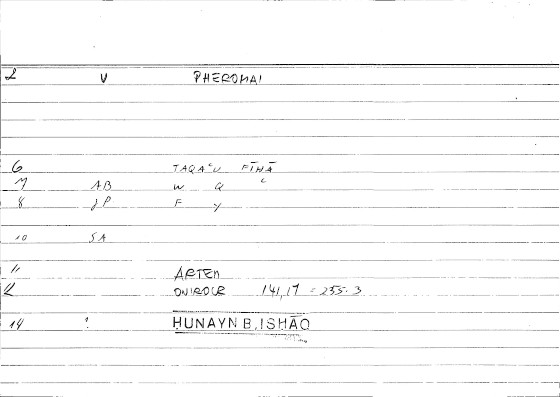 2 V PHEROMAI
6 TAQAʿU FĪHĀ
7 AB W Q ʿ
8 JP F Y
10 SA
11 ARTEM
12 ONIROCR 141,17 = 255.3
14 ! HUNAYN B. ISHĀQ